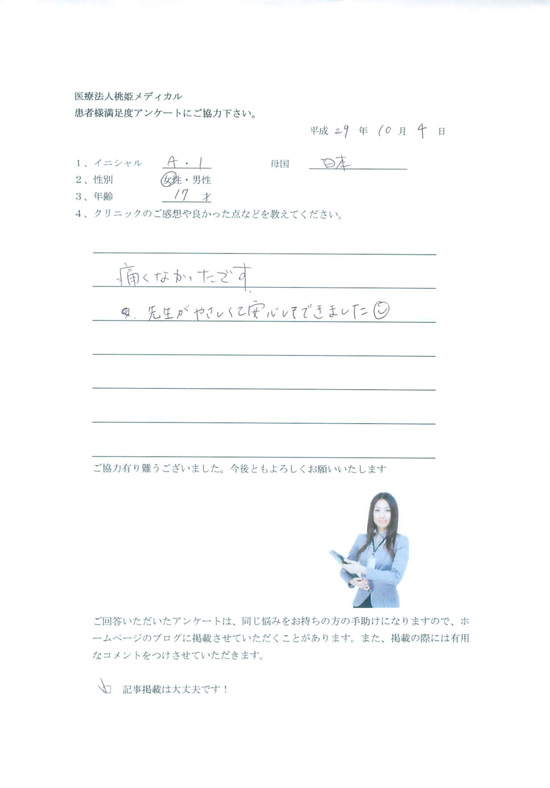 医療法人桃姫メディカル
患者様満足度アンケートにご協力下さい。
平成 29 年 10 月 4 日
1、イニシャル A・I 母国 日本
2、性別 女性・男性
3、年齢 17 才
4、クリニックのご感想や良かった点などを教えてください。
痛くなかったです
先生がやさしくて安心してできました
ご協力有り難うございました。今後ともよろしくお願いいたします
ご回答いただいたアンケートは、同じ悩みをお持ちの方の手助けになりますので、ホ
ームページのブログに掲載させていただくことがあります。また、掲載の際には有用
なコメントをつけさせていただきます。
記事掲載は大丈夫です！